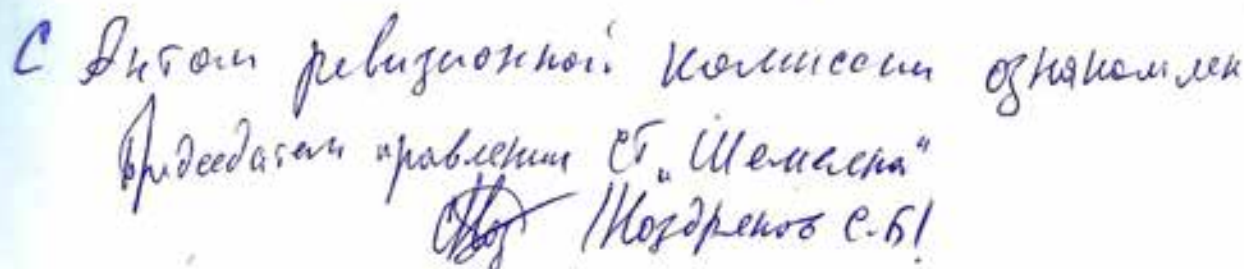 С Актом ревизионной комиссии ознакомлен
Председатель правления СТ „Шемелена"
/Ноздренков С.Б/